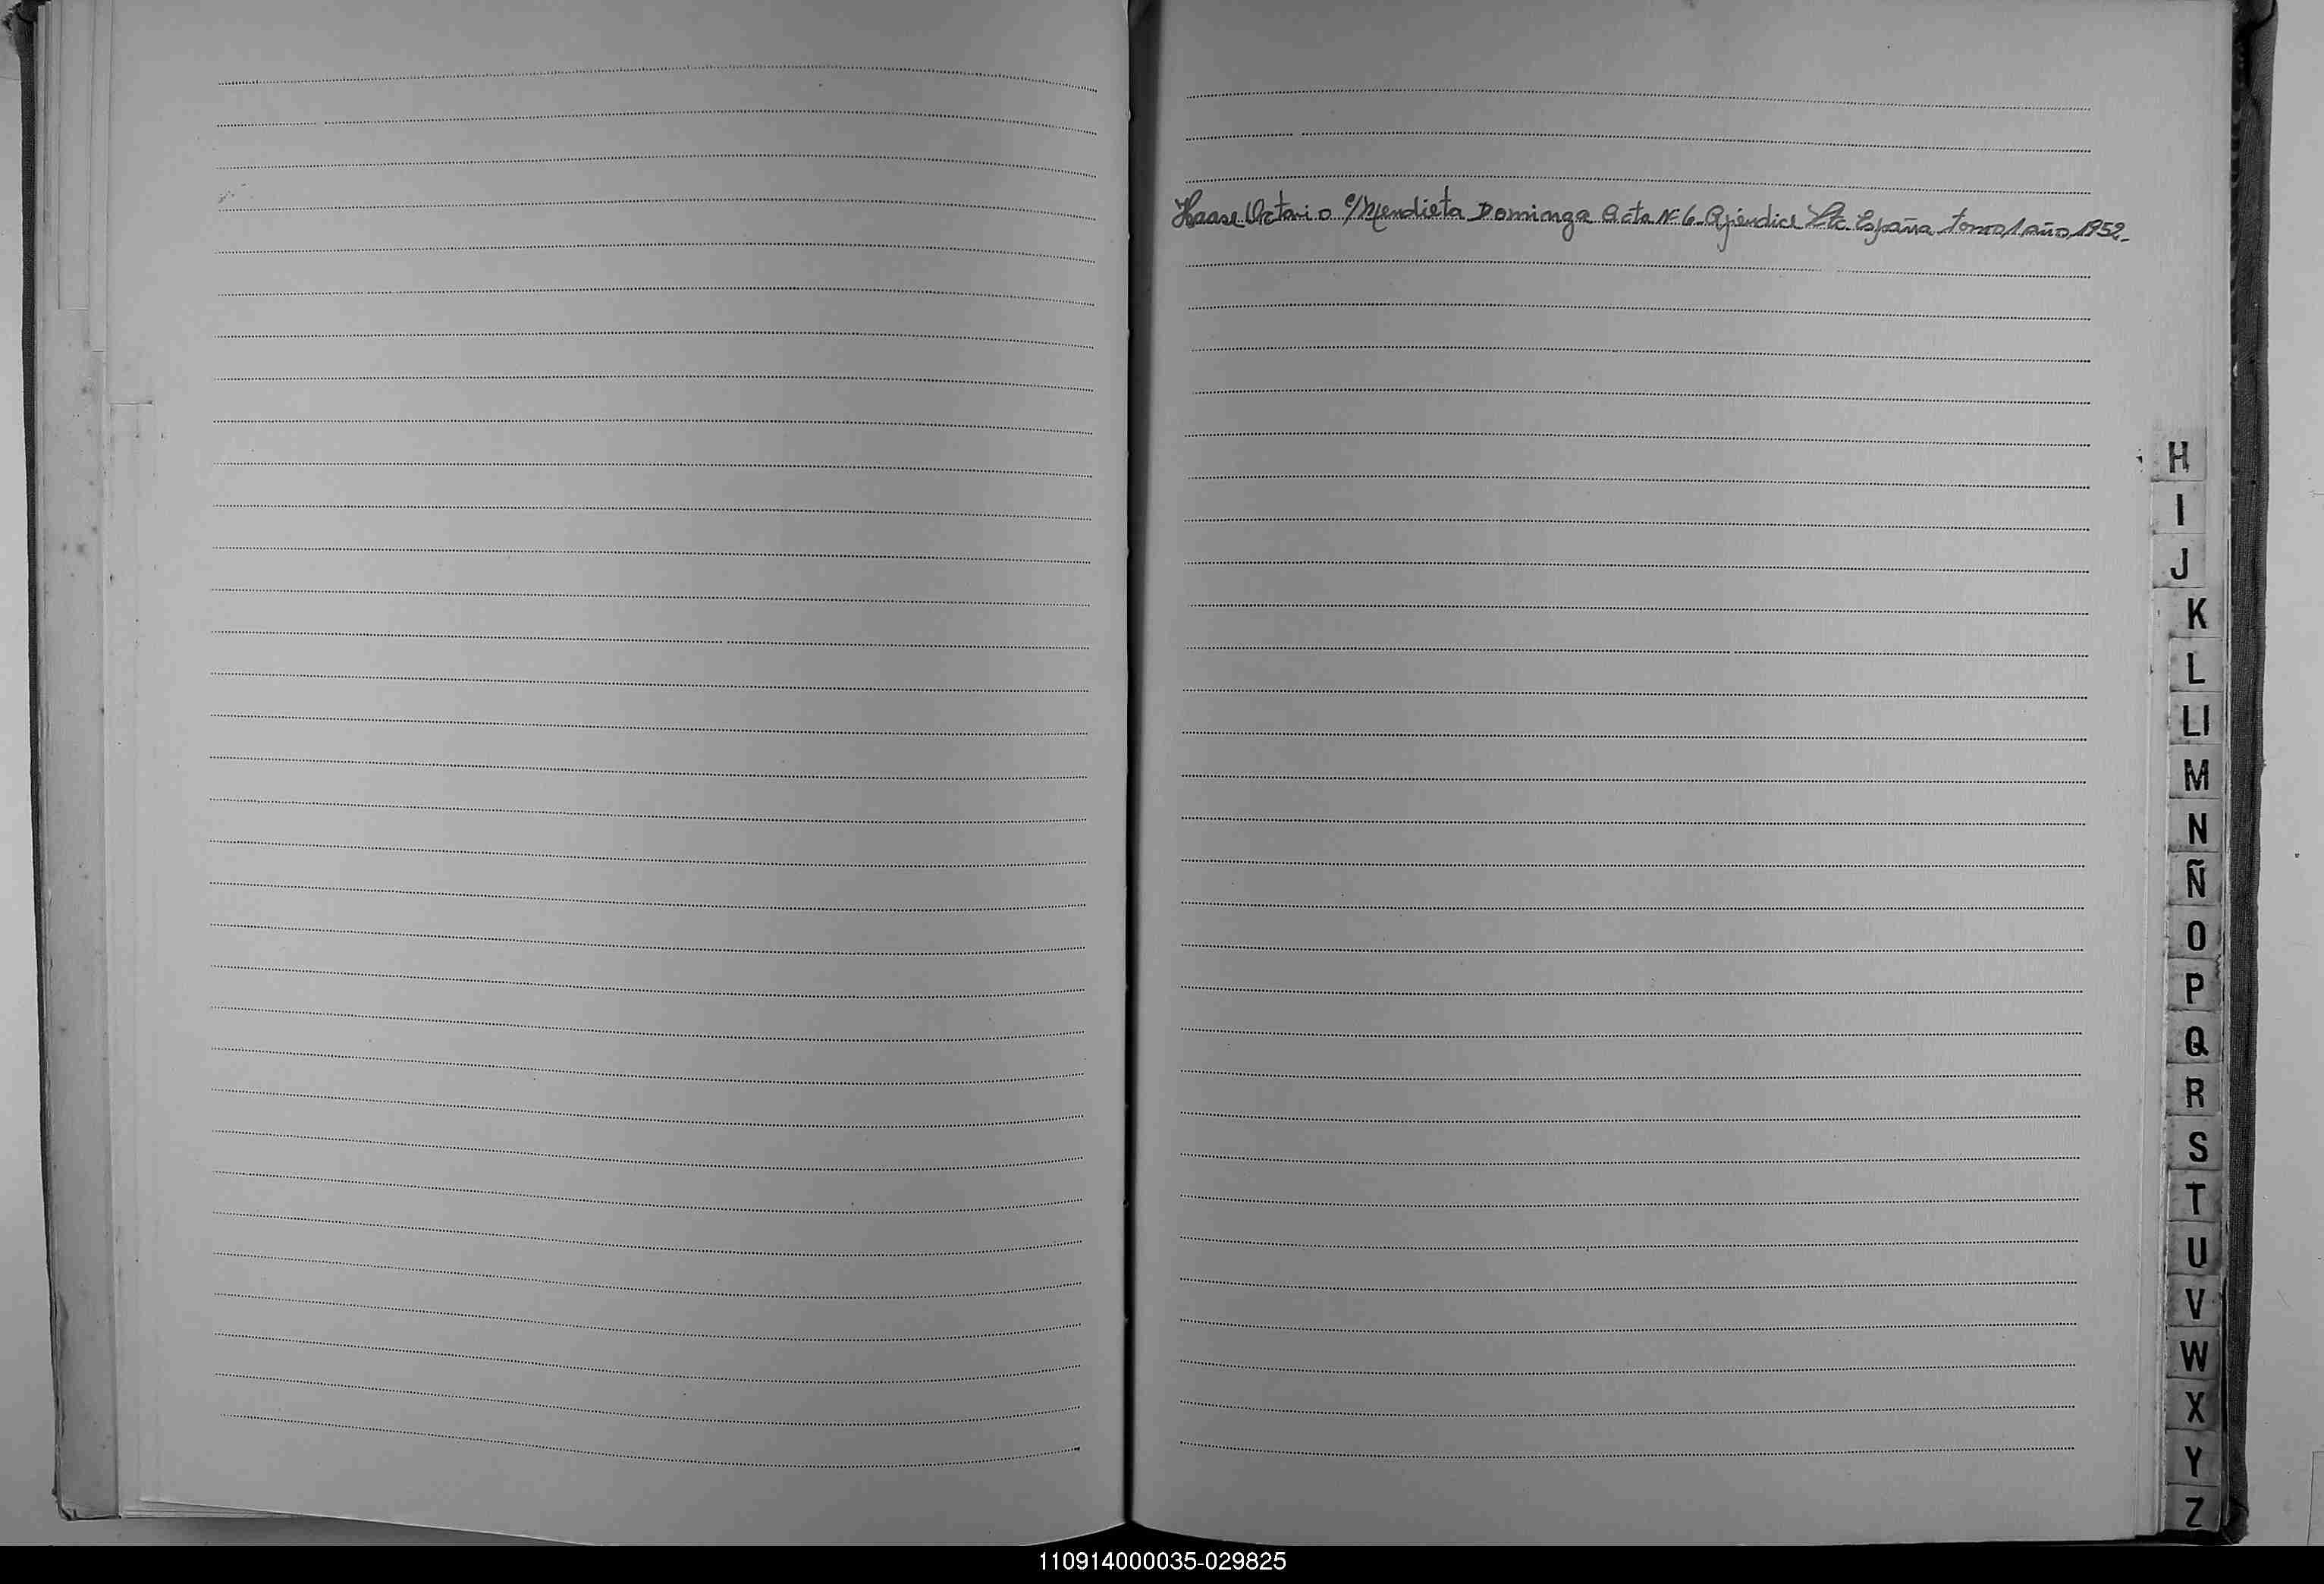 Haase Octavio c/Mendieta Dominga Acta Nº 6 Apéndice Vta. España tomo 1 año 1952.
H
I
J
K
L
Ll
M
N
Ñ
O
P
Q
R
S
T
U
V
W
X
Y
Z
110914000035-029825